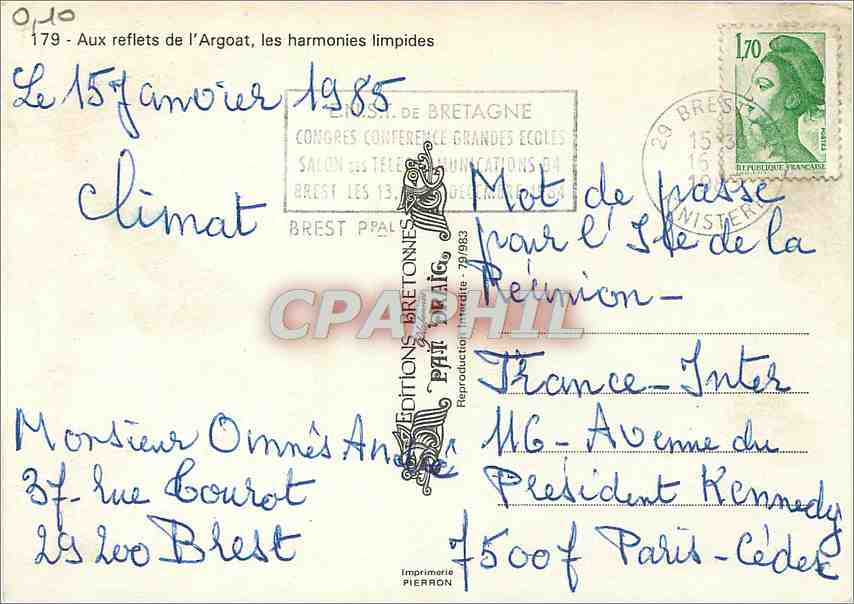 0,10
179 - Aux reflets de l'Argoat, les harmonies limpides
Le 15 Janvier 1985
climat
Monsieur Omnès André
37- rue Tourot
29200 Brest
E.N.S.T. DE BRETAGNE
CONGRES CONFERENCE GRANDES ECOLES
SALON DES TELECOMMUNICATIONS 84
BREST LES 13, DECEMBRE 1984
BREST PPAL
EDITIONS BRETONNES
PAT DRAIG
Reproduction Interdite - 79/983
CPAPHIL
Imprimerie
PIERRON
1,70
POSTES
REPUBLIQUE FRANÇAISE
29 BREST
15
16
19
FINISTERE
Mot de passe
pour l'Ile de la
Réunion-
France-Inter
116- Avenue du
Président Kennedy
75007 Paris-Cédex